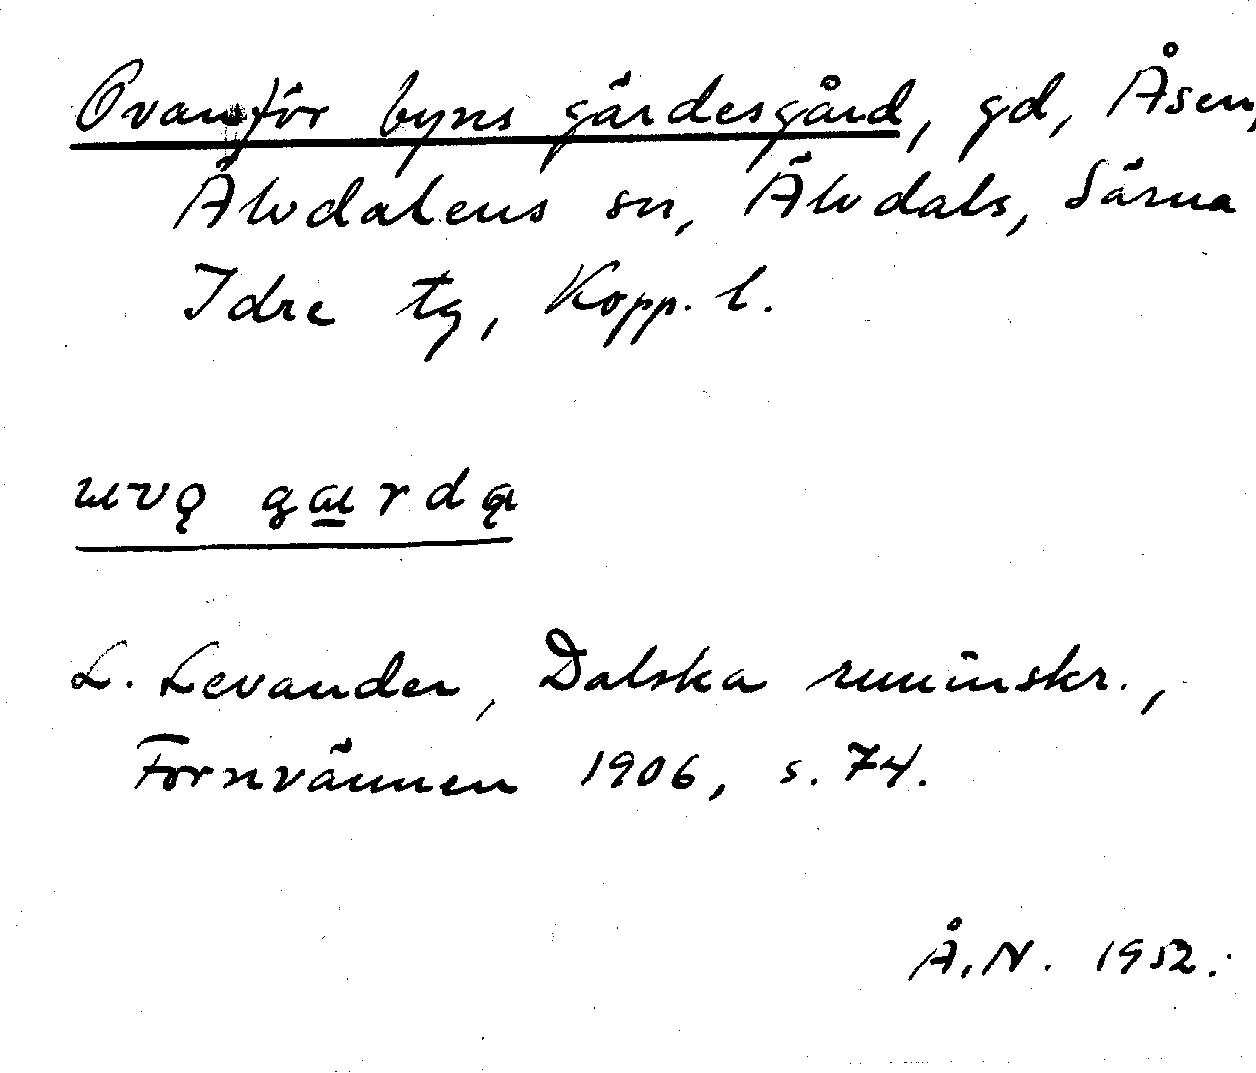 Ovanför byns gärdesgård, gd, Åsen,
Älvdalens sn, Älvdals, Särna
Idre tg, Kopp. l.
uvǫ gærdą
L. Levander, Dalska runinskr.,
Fornvännen 1906, s. 74.
Å.N. 1952.